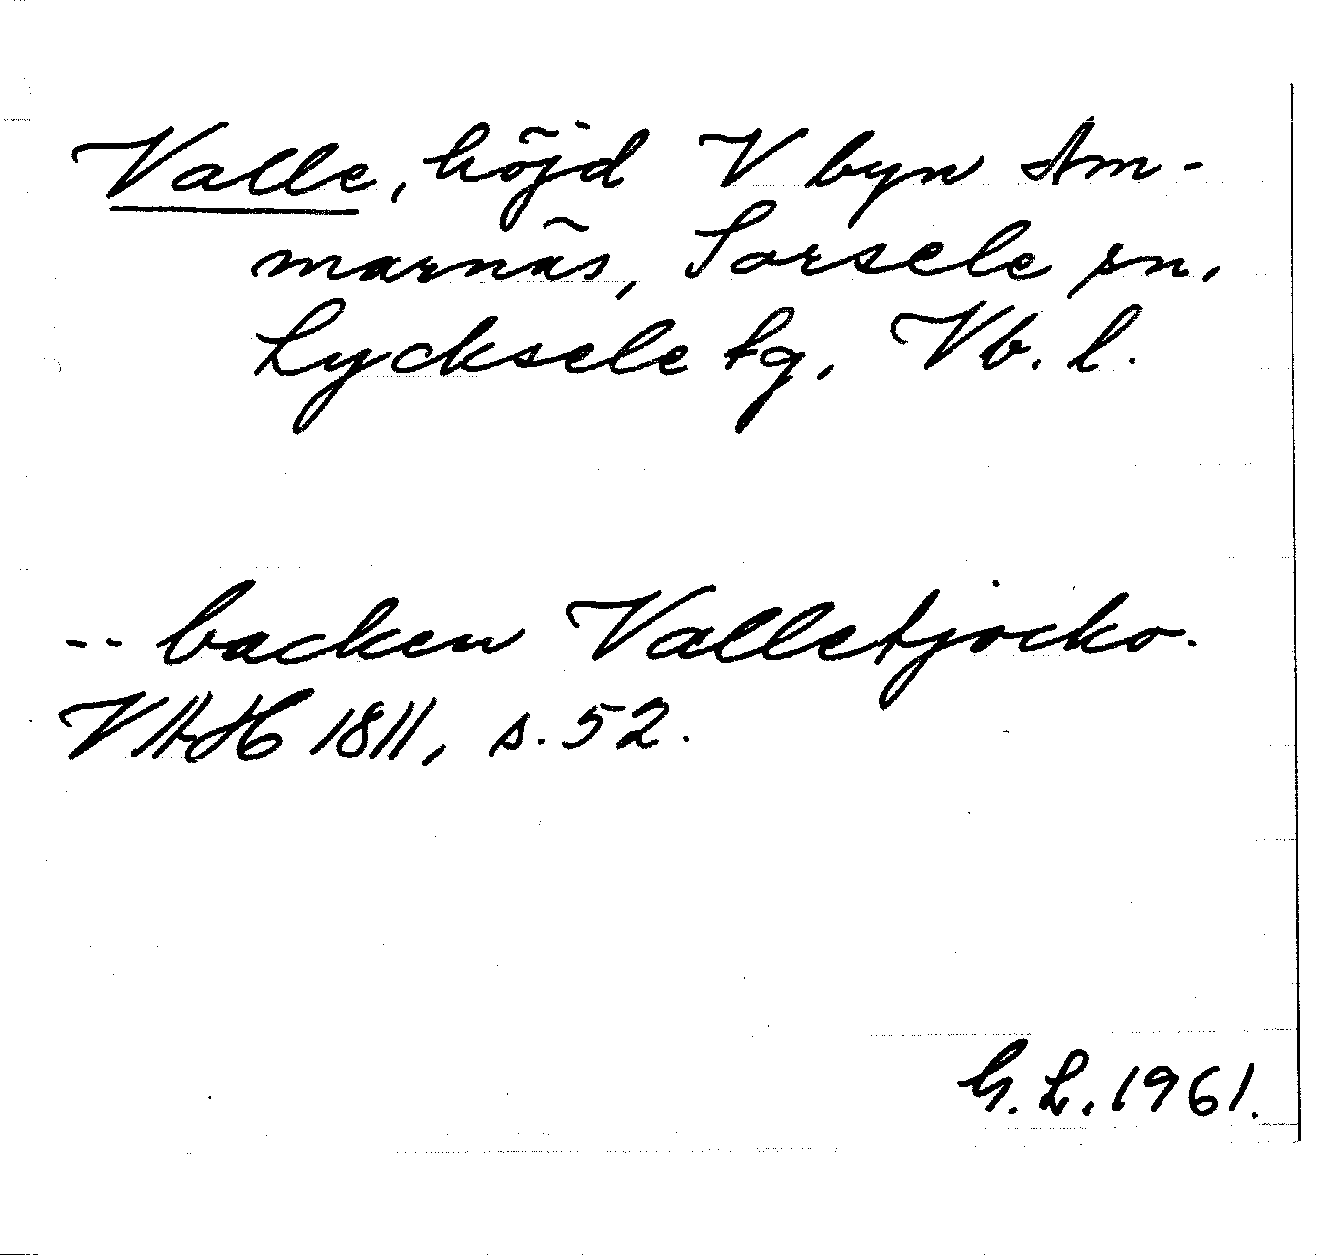 Valle, höjd V byn Am-
marnäs, Sorsele sn,
Lycksele tg, Vb. l.
-- backen Valletjocko.
VAH 1811, s. 52.
G. L. 1961.